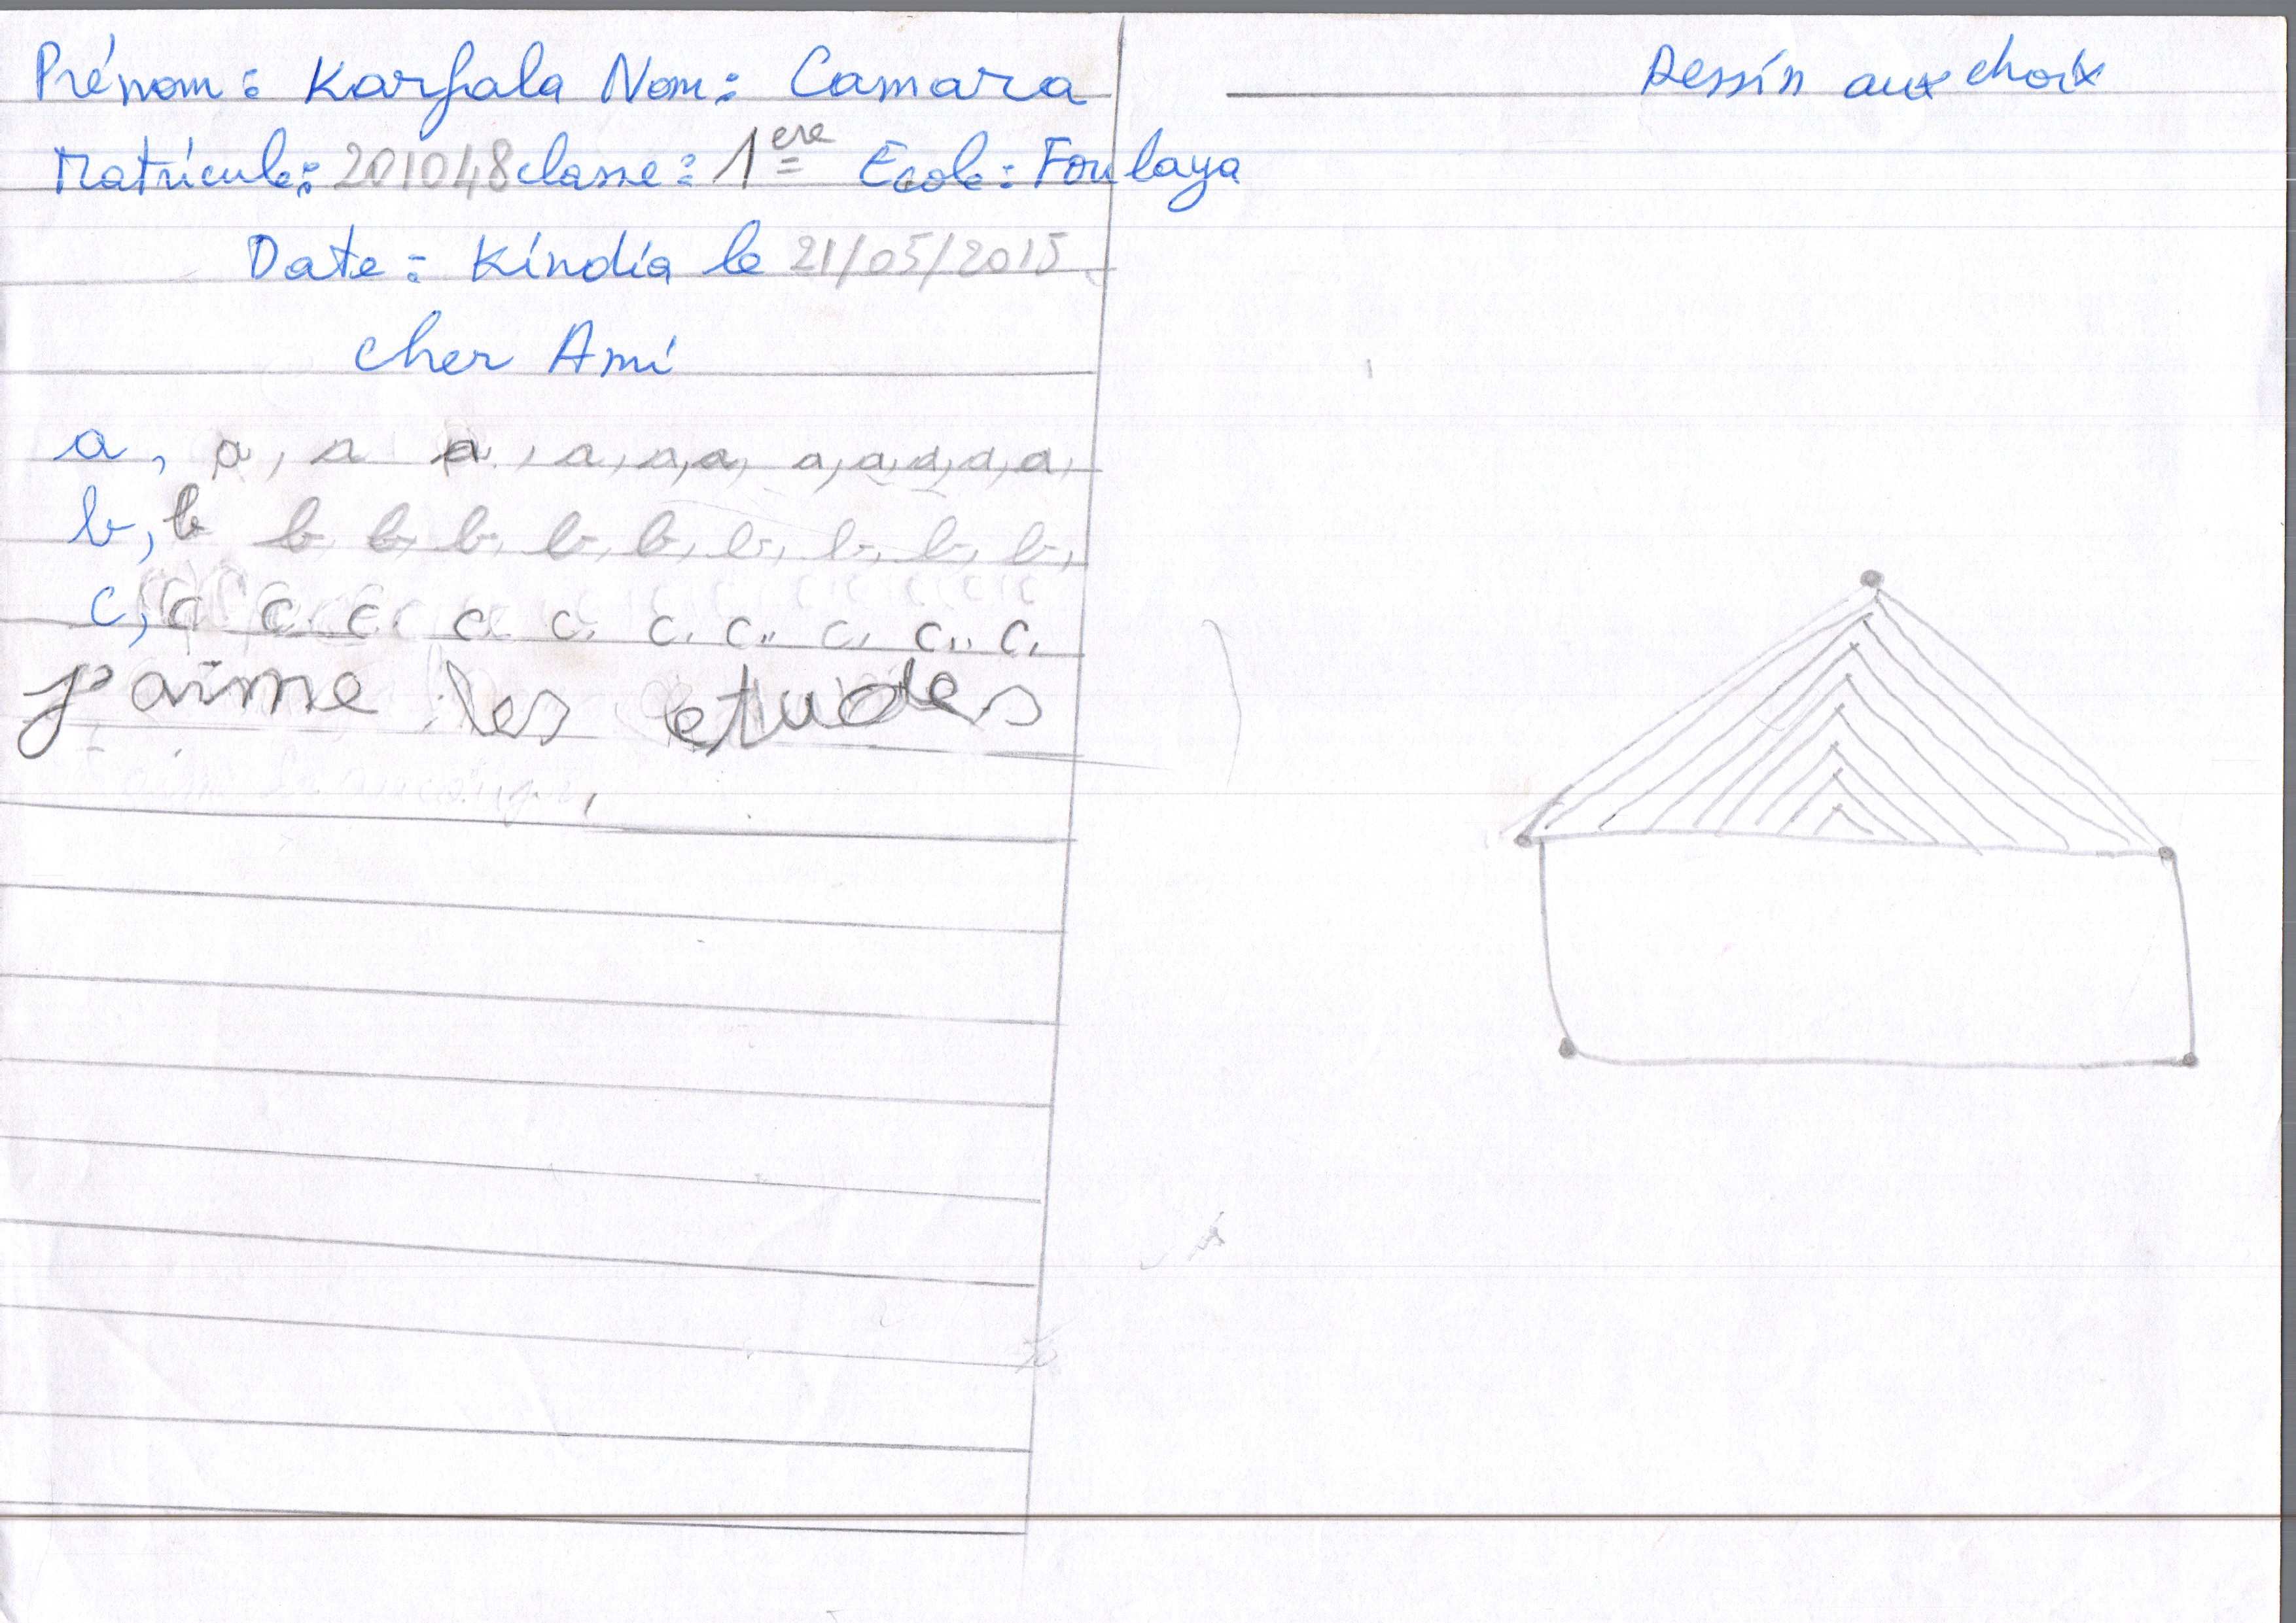 Prénom : Karfala Nom : Camara
Matricule : 201048 classe : 1ere Ecole : Foulaya
Date : Kindia le 21/05/2015
cher Ami
a, a, a a, a, a, a, a, a, a, a, a,
b, b b b, b, b, b, b, b, b, b,
c, c c. c. c. c. c. c.. c. c.. c.
j'aime les etudes
Dessin aux choix